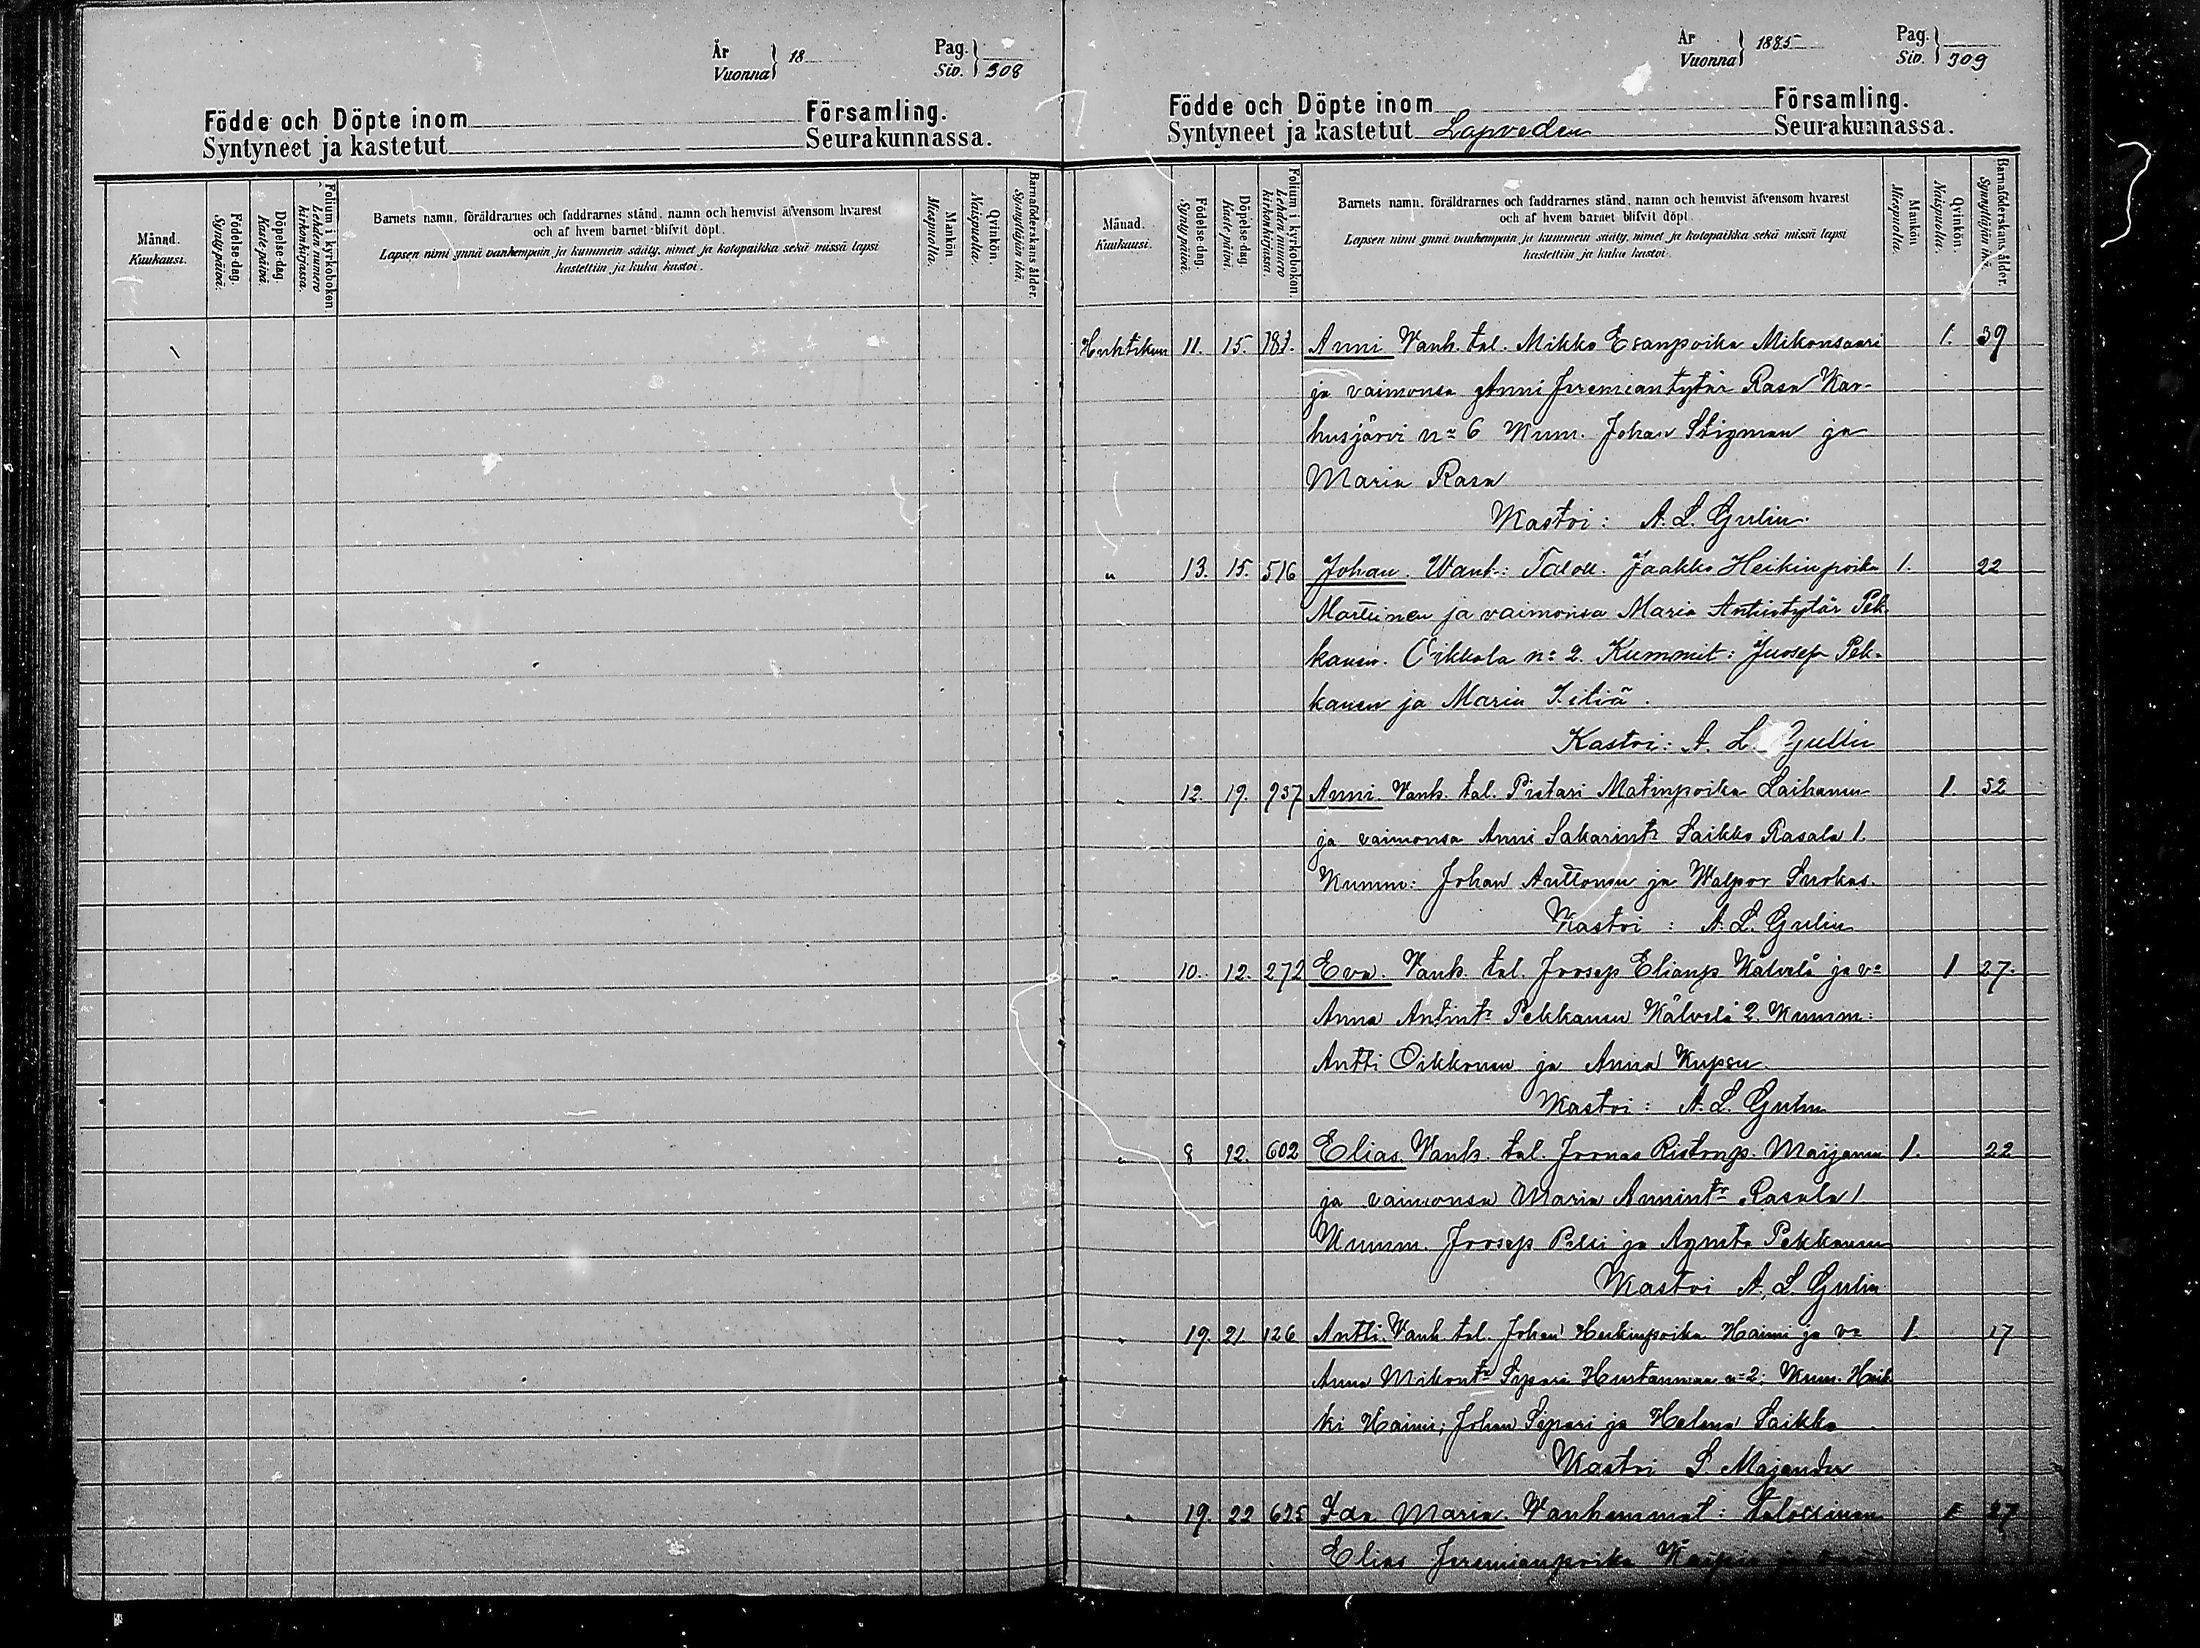 År
Vuonna } 18
Pag.
Siv. } 308
Födde och Döpte inom Församling.
Syntyneet ja kastetut Seurakunnassa.
Månad.
Kuukausi.
Födelse-dag.
Syntypäivä.
Döpelse-dag.
Kaste päivä.
Folium i kyrkoboken.
Lehden numero kirkonkirjassa.
Barnets namn, föräldrarnes och faddrarnes stånd, namn och hemvist äfvensom hvarest
och af hvem barnet blifvit döpt.
Lapsen nimi ynnä vanhempain ja kummein sääty, nimet ja kotopaikka sekä missä lapsi
kastettiin ja kuka kastoi.
Mankön.
Miespuolia.
Qvinkön.
Naispuolia.
Barnaföderskans ålder.
Synnyttäjän ikä.
År
Vuonna } 1885
Pag.
Siv. } 309
Födde och Döpte inom Församling.
Syntyneet ja kastetut Lapveden Seurakunnassa.
Månad.
Kuukausi.
Födelse-dag.
Syntypäivä.
Döpelse-dag.
Kaste päivä.
Folium i kyrkoboken.
Lehden numero kirkonkirjassa.
Barnets namn, föräldrarnes och faddrarnes stånd, namn och hemvist äfvensom hvarest
och af hvem barnet blifvit döpt.
Lapsen nimi ynnä vanhempain ja kummein sääty, nimet ja kotopaikka sekä missä lapsi
kastettiin ja kuka kastoi.
Mankön.
Miespuolia.
Qvinkön.
Naispuolia.
Barnaföderskans ålder.
Synnyttäjän ikä.
Huhtikuu 11. 15. 781. Anni Vanh. tal. Mikko Esanpoika Mikonsaari 1. 39
ja vaimonsa Anni Jeremiantytär Rasa Kar-
husjärvi n:o 6 Kum. Johan Stigman ja
Maria Rasa
Kastoi: A. L. Gulin.
" 13. 15. 516 Johan. Wanh.: Taloll. Jaakko Heikinpoika 1. 22
Marttinen ja vaimonsa Maria Antintytär Pek-
kanen. Oikkola n:o 2. Kummit: Juosep Pek-
kanen ja Maria Itiä.
Kastoi: A. L. Gullin
" 12. 19. 937 Anni. Vanh. tal. Pietari Matinpoika Laihanen 1. 32
ja vaimonsa Anni Sakarintr Saikko Rasala 1.
Kumm: Johan Anttonen ja Walpor Suokas.
Kastoi: A. L. Gulin
" 10. 12. 272 Eva. Vanh. tal. Joosep Elianp Kälvelä ja vo 1 27.
Anna Antintr Pekkanen Kälvelä 2. Kumm:
Antti Oikkonen ja Anna Kupsu.
Kastoi: A. L. Gulin
" 8 12. 602 Elias. Vanh. tal. Joonas Ristonp. Maijanen 1. 22
ja vaimonsa Maria Annintr Rasala 1
Kumm. Joosep Pelli ja Agneta Pekkanen
Kastoi A. L. Gulin
" 19. 21 126 Antti. Vanh tal. Johan Heikinpoika Haimi ja vo 1 17
Anna Mikontr Sipari Hurtanmaa n:o 2; Kum. Heik
ki Haimi; Johan Sipari ja Helena Saikko
Kastoi S. Majander
" 19. 22 625 Ida Maria. Vanhemmat: talollinen 1 27
Elias Jeremianpoika Kaipia ja